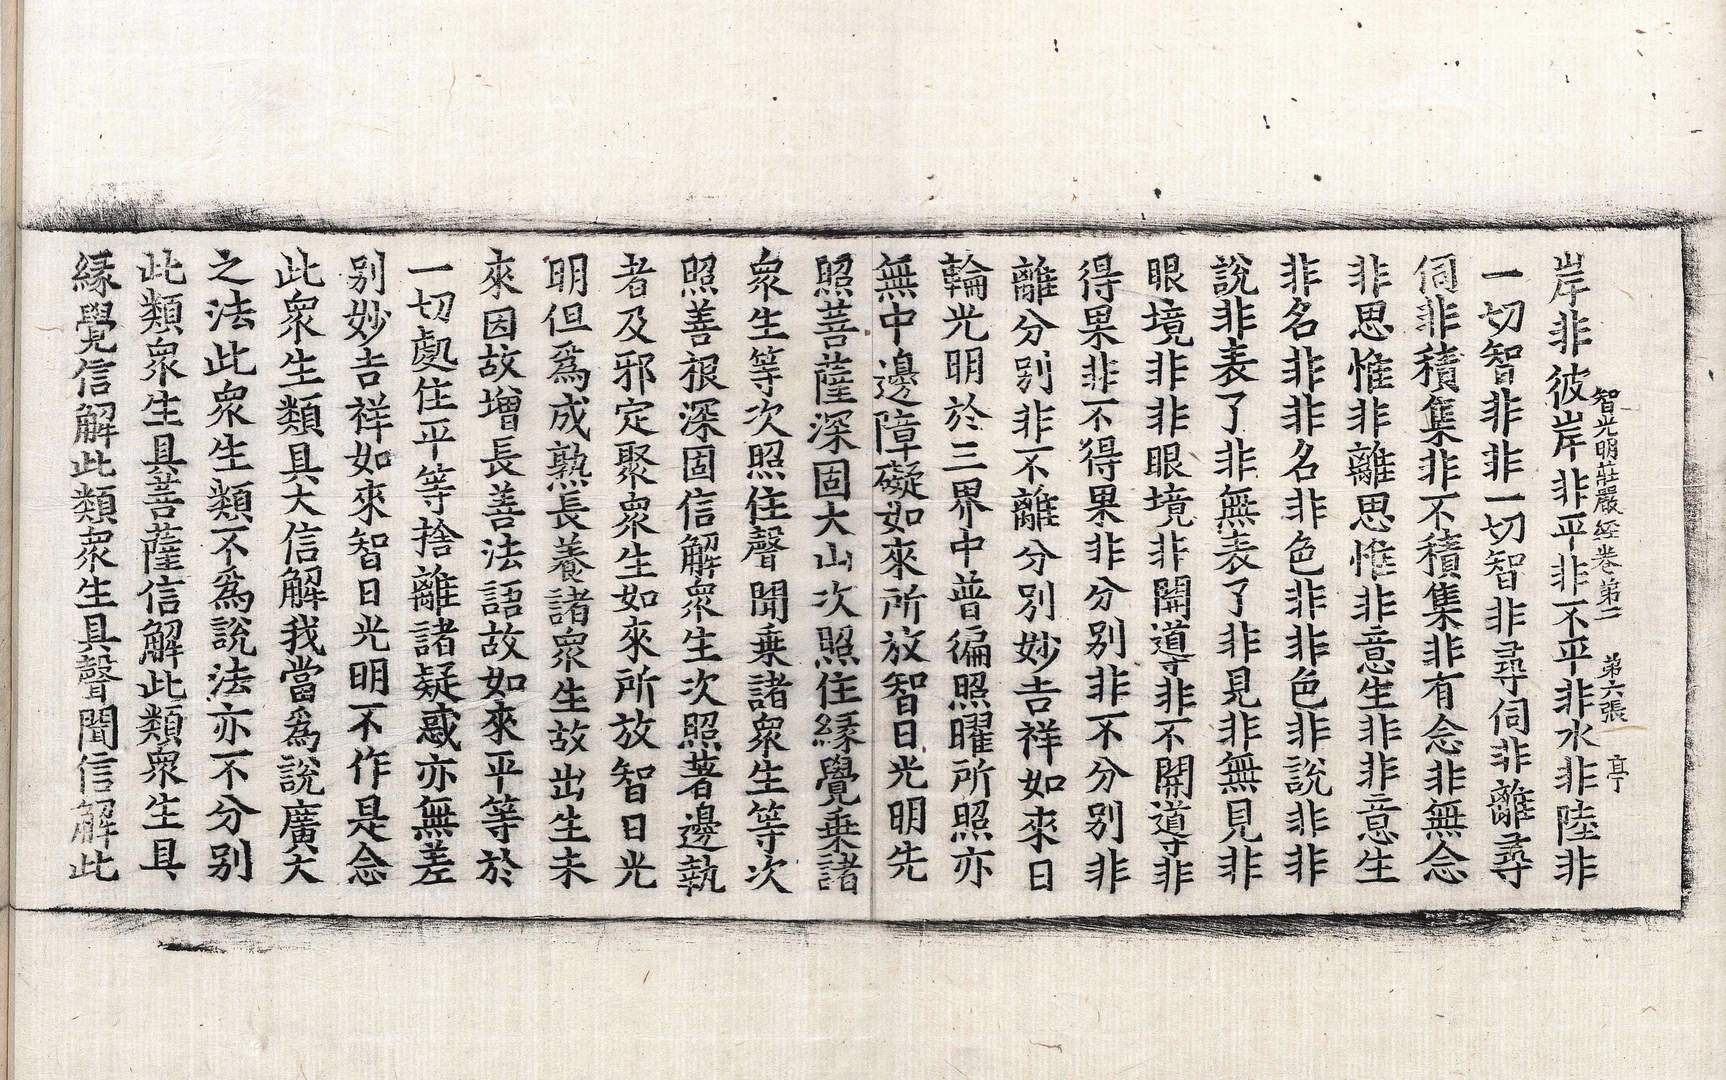 智光明莊嚴經卷第二 第六張 亭
岸非彼岸非平非不平非水非陸非
一切智非非一切智非尋伺非離尋
伺非積集非不積集非有念非無念
非思惟非離思惟非意生非非意生
非名非非名非色非非色非說非非
說非表了非無表了非見非無見非
眼境非非眼境非開導非不開導非
得果非不得果非分別非不分別非
離分別非不離分別妙吉祥如來日
輪光明於三界中普徧照曜所照亦
無中邊障礙如來所放智日光明先
照菩薩深固大山次照住緣覺乗諸
衆生等次照住聲聞乗諸衆生等次
照善根深固信解衆生次照著邊執
者及邪定聚衆生如來所放智日光
明但爲成熟長養諸衆生故出生未
來因故增長善法語故如來平等於
一切處住平等捨離諸疑惑亦無差
別妙吉祥如來智日光明不作是念
此衆生類具大信解我當爲說廣大
之法此衆生類不爲說法亦不分別
此類衆生具菩薩信解此類衆生具
緣覺信解此類衆生具聲聞信解此